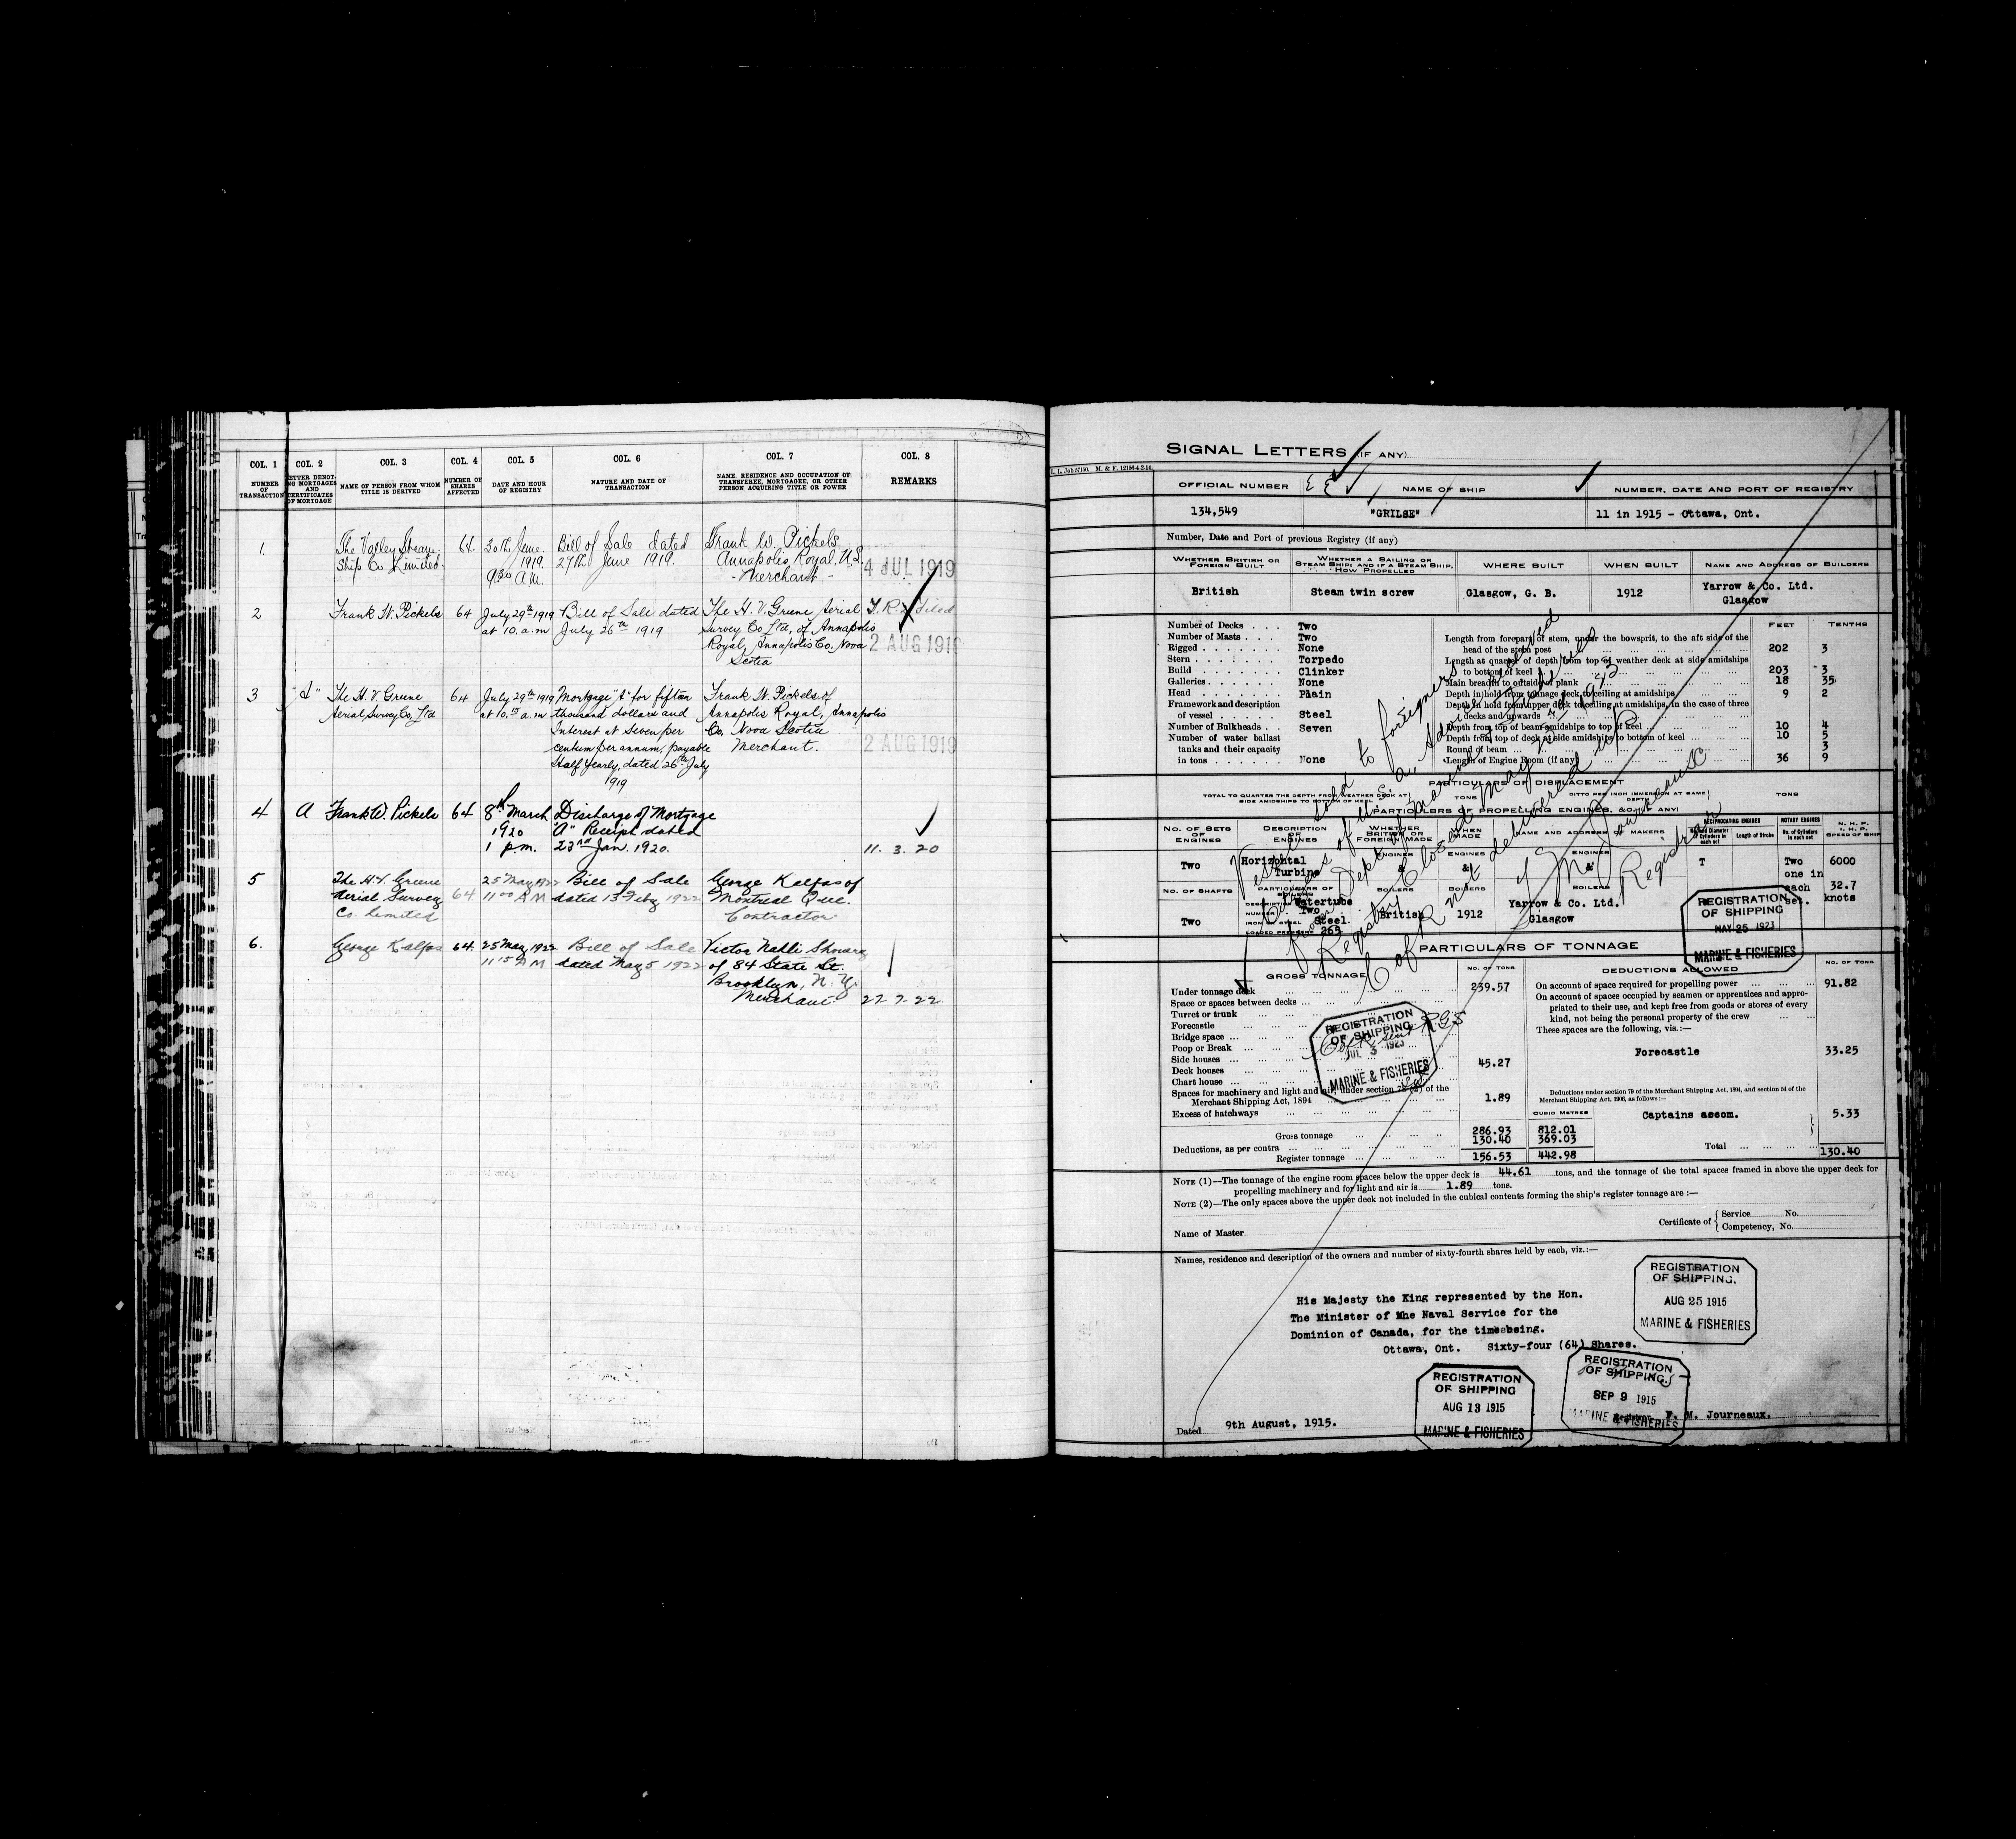 COL. 1 COL. 2 COL. 3 COL. 4 COL. 5 COL. 6 COL. 7 COL. 8
NUMBER OF TRANSACTION
LETTER DENOTING MORTGAGES AND CERTIFICATES OF MORTGAGE
NAME OF PERSON FROM WHOM TITLE IS DERIVED
NUMBER OF SHARES AFFECTED
DATE AND HOUR OF REGISTRY
NATURE AND DATE OF TRANSACTION
NAME, RESIDENCE AND OCCUPATION OF TRANSFEREE, MORTGAGEE, OR OTHER PERSON ACQUIRING TITLE OR POWER
REMARKS
1. The Valley Steam 64. 30th June. Bill of Sale dated Frank W. Pickels
Ship Co Limited. 1919. 27th June 1919. Annapolis Royal, N.S.
9.30 A.M. - Merchant - 4 JUL 1919
2 Frank W. Pickels 64 July 29th 1919 Bill of Sale dated The H. V. Greene Aerial
at 10. a.m July 26th 1919 Survey Co Ltd, of Annapolis
Royal, Annapolis Co, Nova 2 AUG 1919
Scotia
3 The H. V. Greene 64 July 29th 1919 Mortgage "A" for fifteen Frank W. Pickels of
Aerial Survey Co, Ltd at 10. a.m thousand dollars and Annapolis Royal, Annapolis
Interest at Seven per Co. Nova Scotia
centum per annum, payable Merchant. 2 AUG 1919
Half Yearly, dated 26th July
1919
4 A Frank W. Pickels 64 8th March Discharge of Mortgage
1920 "A" Receipt dated
1 p.m. 23rd Jan. 1920. 11. 3. 20
5 The H.V. Greene 25 May 1922 Bill of Sale George Kalfas of
Aerial Survey 64 11 00 AM dated 13 Feby 1922 Montreal Que.
Co. Limited Contractor
6. George Kalfas 64. 25 May 1922 Bill of Sale Victor Nahli
11 15 AM dated May 5 1922 of 84 State St.
Brooklyn, N.Y.
Merchant 27 7 22
SIGNAL LETTERS (IF ANY)
L. I. Job 57150. M. & F. 12156-4-2-14.
OFFICIAL NUMBER NAME OF SHIP NUMBER, DATE AND PORT OF REGISTRY
134,549 "GRILSE" 11 in 1915 - Ottawa, Ont.
Number, Date and Port of previous Registry (if any)
WHETHER BRITISH OR FOREIGN BUILT
WHETHER A SAILING OR STEAM SHIP; AND IF A STEAM SHIP, HOW PROPELLED
WHERE BUILT WHEN BUILT NAME AND ADDRESS OF BUILDERS
British Steam twin screw Glasgow, G. B. 1912 Yarrow & Co. Ltd.
Glasgow
FEET TENTHS
Number of Decks Two
Number of Masts Two
Rigged None
Stern Torpedo
Build Clinker
Galleries None
Head Plain
Framework and description of vessel Steel
Number of Bulkheads Seven
Number of water ballast tanks and their capacity in tons None
Length from forepart of stem, under the bowsprit, to the aft side of the head of the stern post 202 3
Length at quarter of depth from top of weather deck at side amidships to bottom of keel 203 3
Main breadth to outside of plank 18 35
Depth in hold from tonnage deck to ceiling at amidships 9 2
Depth in hold from upper deck to ceiling at amidships, in the case of three decks and upwards
Depth from top of beam amidships to top of keel 10 4
Depth from top of deck at side amidships to bottom of keel 10 5
Round of beam 3
Length of Engine Room (if any) 36 9
PARTICULARS OF DISPLACEMENT
TOTAL TO QUARTER THE DEPTH FROM WEATHER DECK AT SIDE AMIDSHIPS TO BOTTOM OF KEEL TONS DITTO PER INCH IMMERSION AT SAME DEPTH TONS
PARTICULARS OF PROPELLING ENGINES, &c. (IF ANY)
NO. OF SETS OF ENGINES
DESCRIPTION OF ENGINES
WHETHER BRITISH OR FOREIGN MADE
WHEN MADE
NAME AND ADDRESS OF MAKERS
RECIPROCATING ENGINES ROTARY ENGINES
Length of Stroke
No. of Cylinders in each set
N. H. P. I. H. P. SPEED OF SHIP
ENGINES ENGINES ENGINES
Two Horizontal & & & T Two 6000
Turbine one in
each 32.7
set. knots
NO. OF SHAFTS PARTICULARS OF BOILERS BOILERS BOILERS BOILERS
DESCRIPTION Watertube
NUMBER Two
Two IRON OR STEEL Steel British 1912 Yarrow & Co. Ltd.
LOADED PRESSURE 265 Glasgow
Vessel sold to foreigners
of U.S.A. Advice received
from Dept. of Marine & Fisheries
Registry Closed May 25th 1923
C of R not delivered up
Registrar
REGISTRATION
OF SHIPPING
MAY 25 1923
MARINE & FISHERIES
PARTICULARS OF TONNAGE
GROSS TONNAGE NO. OF TONS DEDUCTIONS ALLOWED NO. OF TONS
Under tonnage deck 239.57
Space or spaces between decks
Turret or trunk
Forecastle
Bridge space
Poop or Break
Side houses
Deck houses 45.27
Chart house
Spaces for machinery and light and air, under section 78 (2) of the
Merchant Shipping Act, 1894 1.89
Excess of hatchways
CUBIC METRES
Gross tonnage 286.93 812.01
Deductions, as per contra 130.40 369.03
Register tonnage 156.53 442.98
On account of space required for propelling power 91.82
On account of spaces occupied by seamen or apprentices and appro-
priated to their use, and kept free from goods or stores of every
kind, not being the personal property of the crew
These spaces are the following, viz.:—
Forecastle 33.25
Deductions under section 79 of the Merchant Shipping Act, 1894, and section 54 of the
Merchant Shipping Act, 1906, as follows:—
Captains accom. 5.33
Total 130.40
REGISTRATION
OF SHIPPING
JUL 3 1923
MARINE & FISHERIES
NOTE (1)—The tonnage of the engine room spaces below the upper deck is 44.61 tons, and the tonnage of the total spaces framed in above the upper deck for
propelling machinery and for light and air is 1.89 tons.
NOTE (2)—The only spaces above the upper deck not included in the cubical contents forming the ship's register tonnage are :—
Name of Master Certificate of { Service No.
Competency, No.
Names, residence and description of the owners and number of sixty-fourth shares held by each, viz.:—
His Majesty the King represented by the Hon.
The Minister of the Naval Service for the
Dominion of Canada, for the time being.
Ottawa, Ont. Sixty-four (64) Shares.
REGISTRATION
OF SHIPPING.
AUG 25 1915
MARINE & FISHERIES
REGISTRATION
OF SHIPPING
AUG 13 1915
MARINE & FISHERIES
REGISTRATION
OF SHIPPING.
SEP 9 1915
MARINE & FISHERIES
Dated 9th August, 1915. Registrar M. Journeaux.